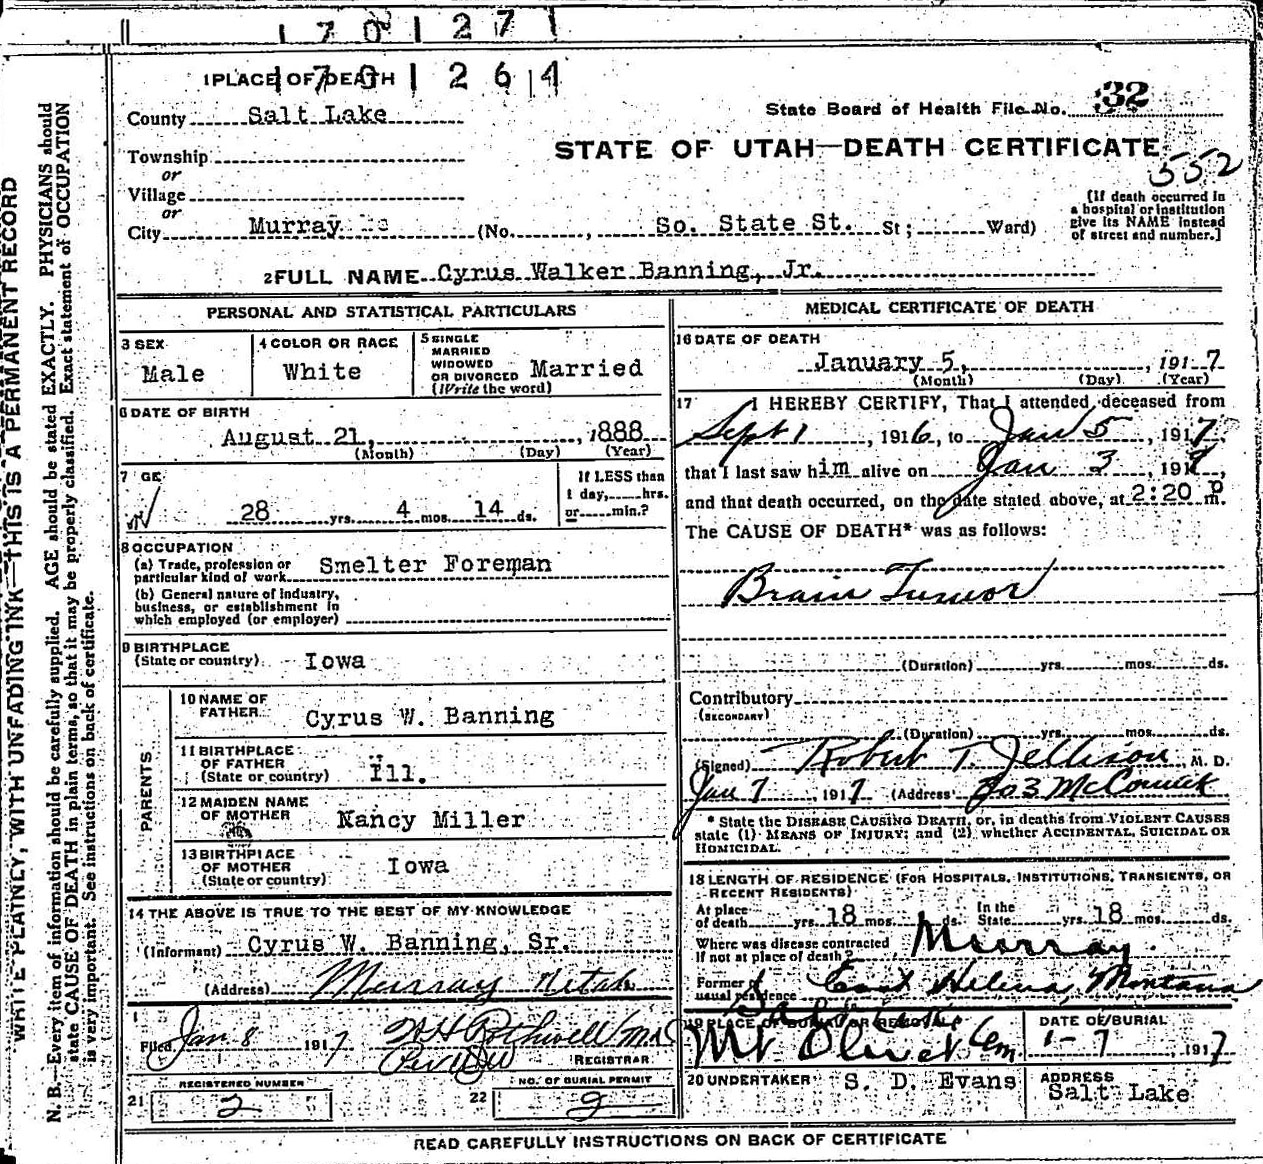 170127
170 1264
1 PLACE OF DEATH
State Board of Health File No. 32
County Salt Lake
STATE OF UTAH—DEATH CERTIFICATE
552
Township
or
Village
or
City Murray (No. , So. State St. St; Ward)
[If death occurred in
a hospital or institution
give its NAME instead
of street and number.]
2 FULL NAME Cyrus Walker Banning, Jr.
PERSONAL AND STATISTICAL PARTICULARS
3 SEX
Male
4 COLOR OR RACE
White
5 SINGLE
MARRIED
WIDOWED
OR DIVORCED Married
(Write the word)
6 DATE OF BIRTH
August 21, , 1888
(Month) (Day) (Year)
7 GE
28 yrs. 4 mos. 14 ds.
If LESS than
1 day, hrs.
or min.?
8 OCCUPATION
(a) Trade, profession or
particular kind of work Smelter Foreman
(b) General nature of industry,
business, or establishment in
which employed (or employer)
9 BIRTHPLACE
(State or country) Iowa
PARENTS
10 NAME OF
FATHER Cyrus W. Banning
11 BIRTHPLACE
OF FATHER
(State or country) Ill.
12 MAIDEN NAME
OF MOTHER Nancy Miller
13 BIRTHPLACE
OF MOTHER
(State or country) Iowa
14 THE ABOVE IS TRUE TO THE BEST OF MY KNOWLEDGE
(Informant) Cyrus W. Banning, Sr.
(Address) Murray Utah
Filed Jan 8 1917
REGISTRAR
REGISTERED NUMBER
21 2
NO. OF BURIAL PERMIT
22 2
MEDICAL CERTIFICATE OF DEATH
16 DATE OF DEATH
January 5, , 1917
(Month) (Day) (Year)
17 I HEREBY CERTIFY, That I attended deceased from
Sept 1 , 1916, to Jan 5 , 1917,
that I last saw him alive on Jan 3 , 191
and that death occurred, on the date stated above, at 2:20 P m.
The CAUSE OF DEATH* was as follows:
Brain Tumor
(Duration) yrs. mos. ds.
Contributory
(SECONDARY)
(Duration) yrs. mos. ds.
(Signed) Robert T. Jellison, M. D.
Jan 7 , 1917 (Address) McCornick
* State the DISEASE CAUSING DEATH, or, in deaths from VIOLENT CAUSES
state (1) MEANS OF INJURY; and (2) whether ACCIDENTAL, SUICIDAL OR
HOMICIDAL.
18 LENGTH OF RESIDENCE (FOR HOSPITALS, INSTITUTIONS, TRANSIENTS, OR
RECENT RESIDENTS)
At place
of death yrs. 18 mos. ds. In the
State yrs. 18 mos. ds.
Where was disease contracted
If not at place of death? Murray.
Former or
usual residence East Helena Montana
19 PLACE OF BURIAL OR REMOVAL
Salt Lake
Mt Olivet Cem
DATE OF BURIAL
1-7 1917
20 UNDERTAKER S. D. Evans
ADDRESS
Salt Lake
READ CAREFULLY INSTRUCTIONS ON BACK OF CERTIFICATE
WRITE PLAINLY, WITH UNFADING INK—THIS IS A PERMANENT RECORD
N. B.—Every item of information should be carefully supplied. AGE should be stated EXACTLY. PHYSICIANS should
state CAUSE OF DEATH in plain terms, so that it may be properly classified. Exact statement of OCCUPATION
is very important. See instructions on back of certificate.